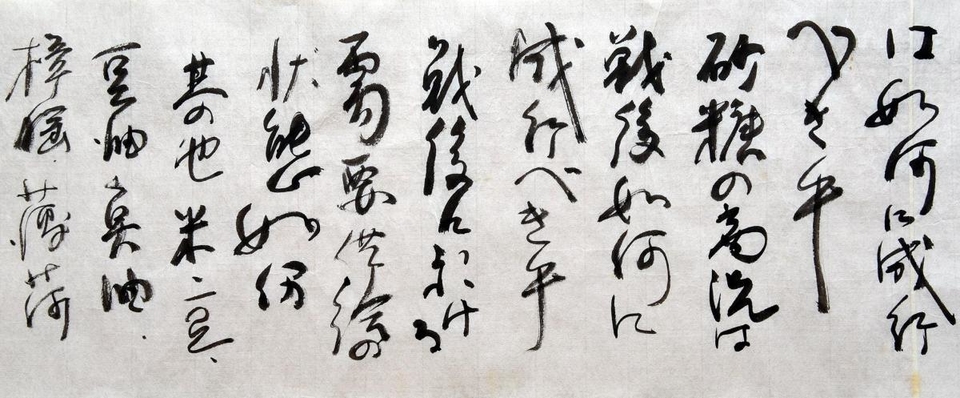 は如何に成行
べき乎
砂糖の商況は
戦後如何に
成行べき乎
戦後に於ける
需要供給の
状態如何
其の他米、豆、
豆油、臭油、
樟脳、薄荷